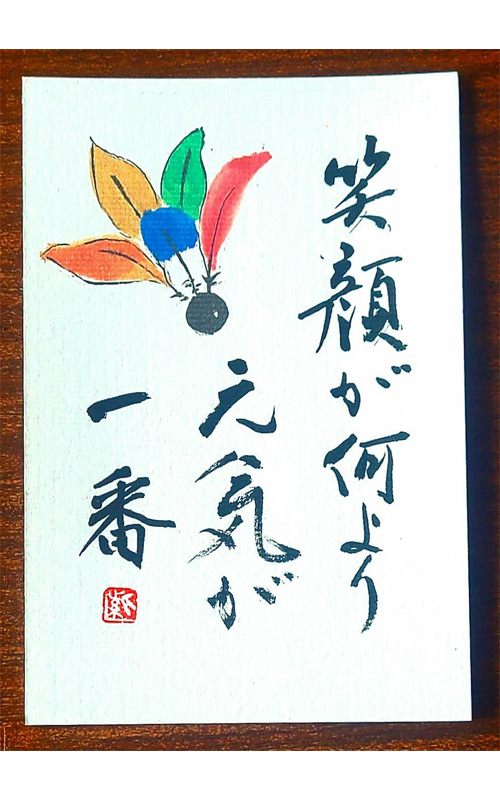 笑顔が何より
元気が
一番